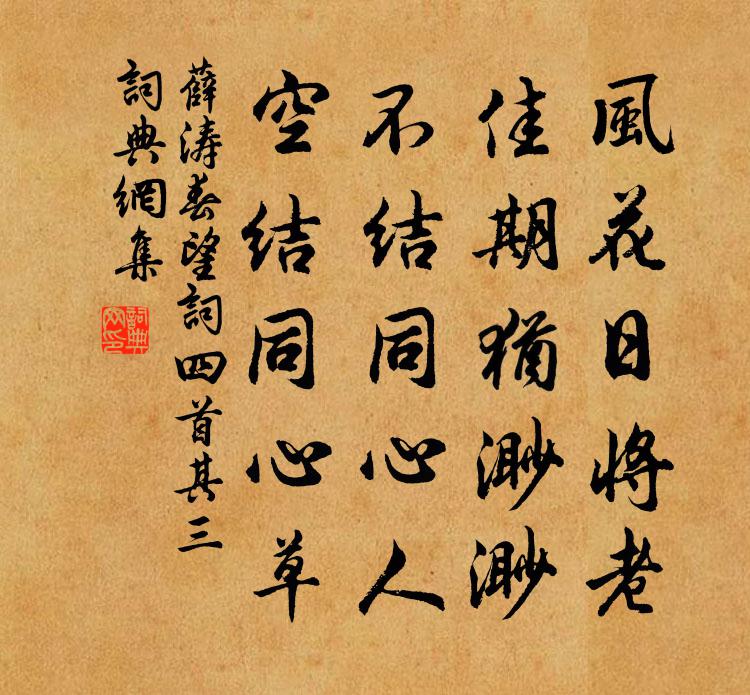 風花日将老
佳期猶渺渺
不結同心人
空結同心草
薛涛春望詞四首其三
詞典網集
詞典網印